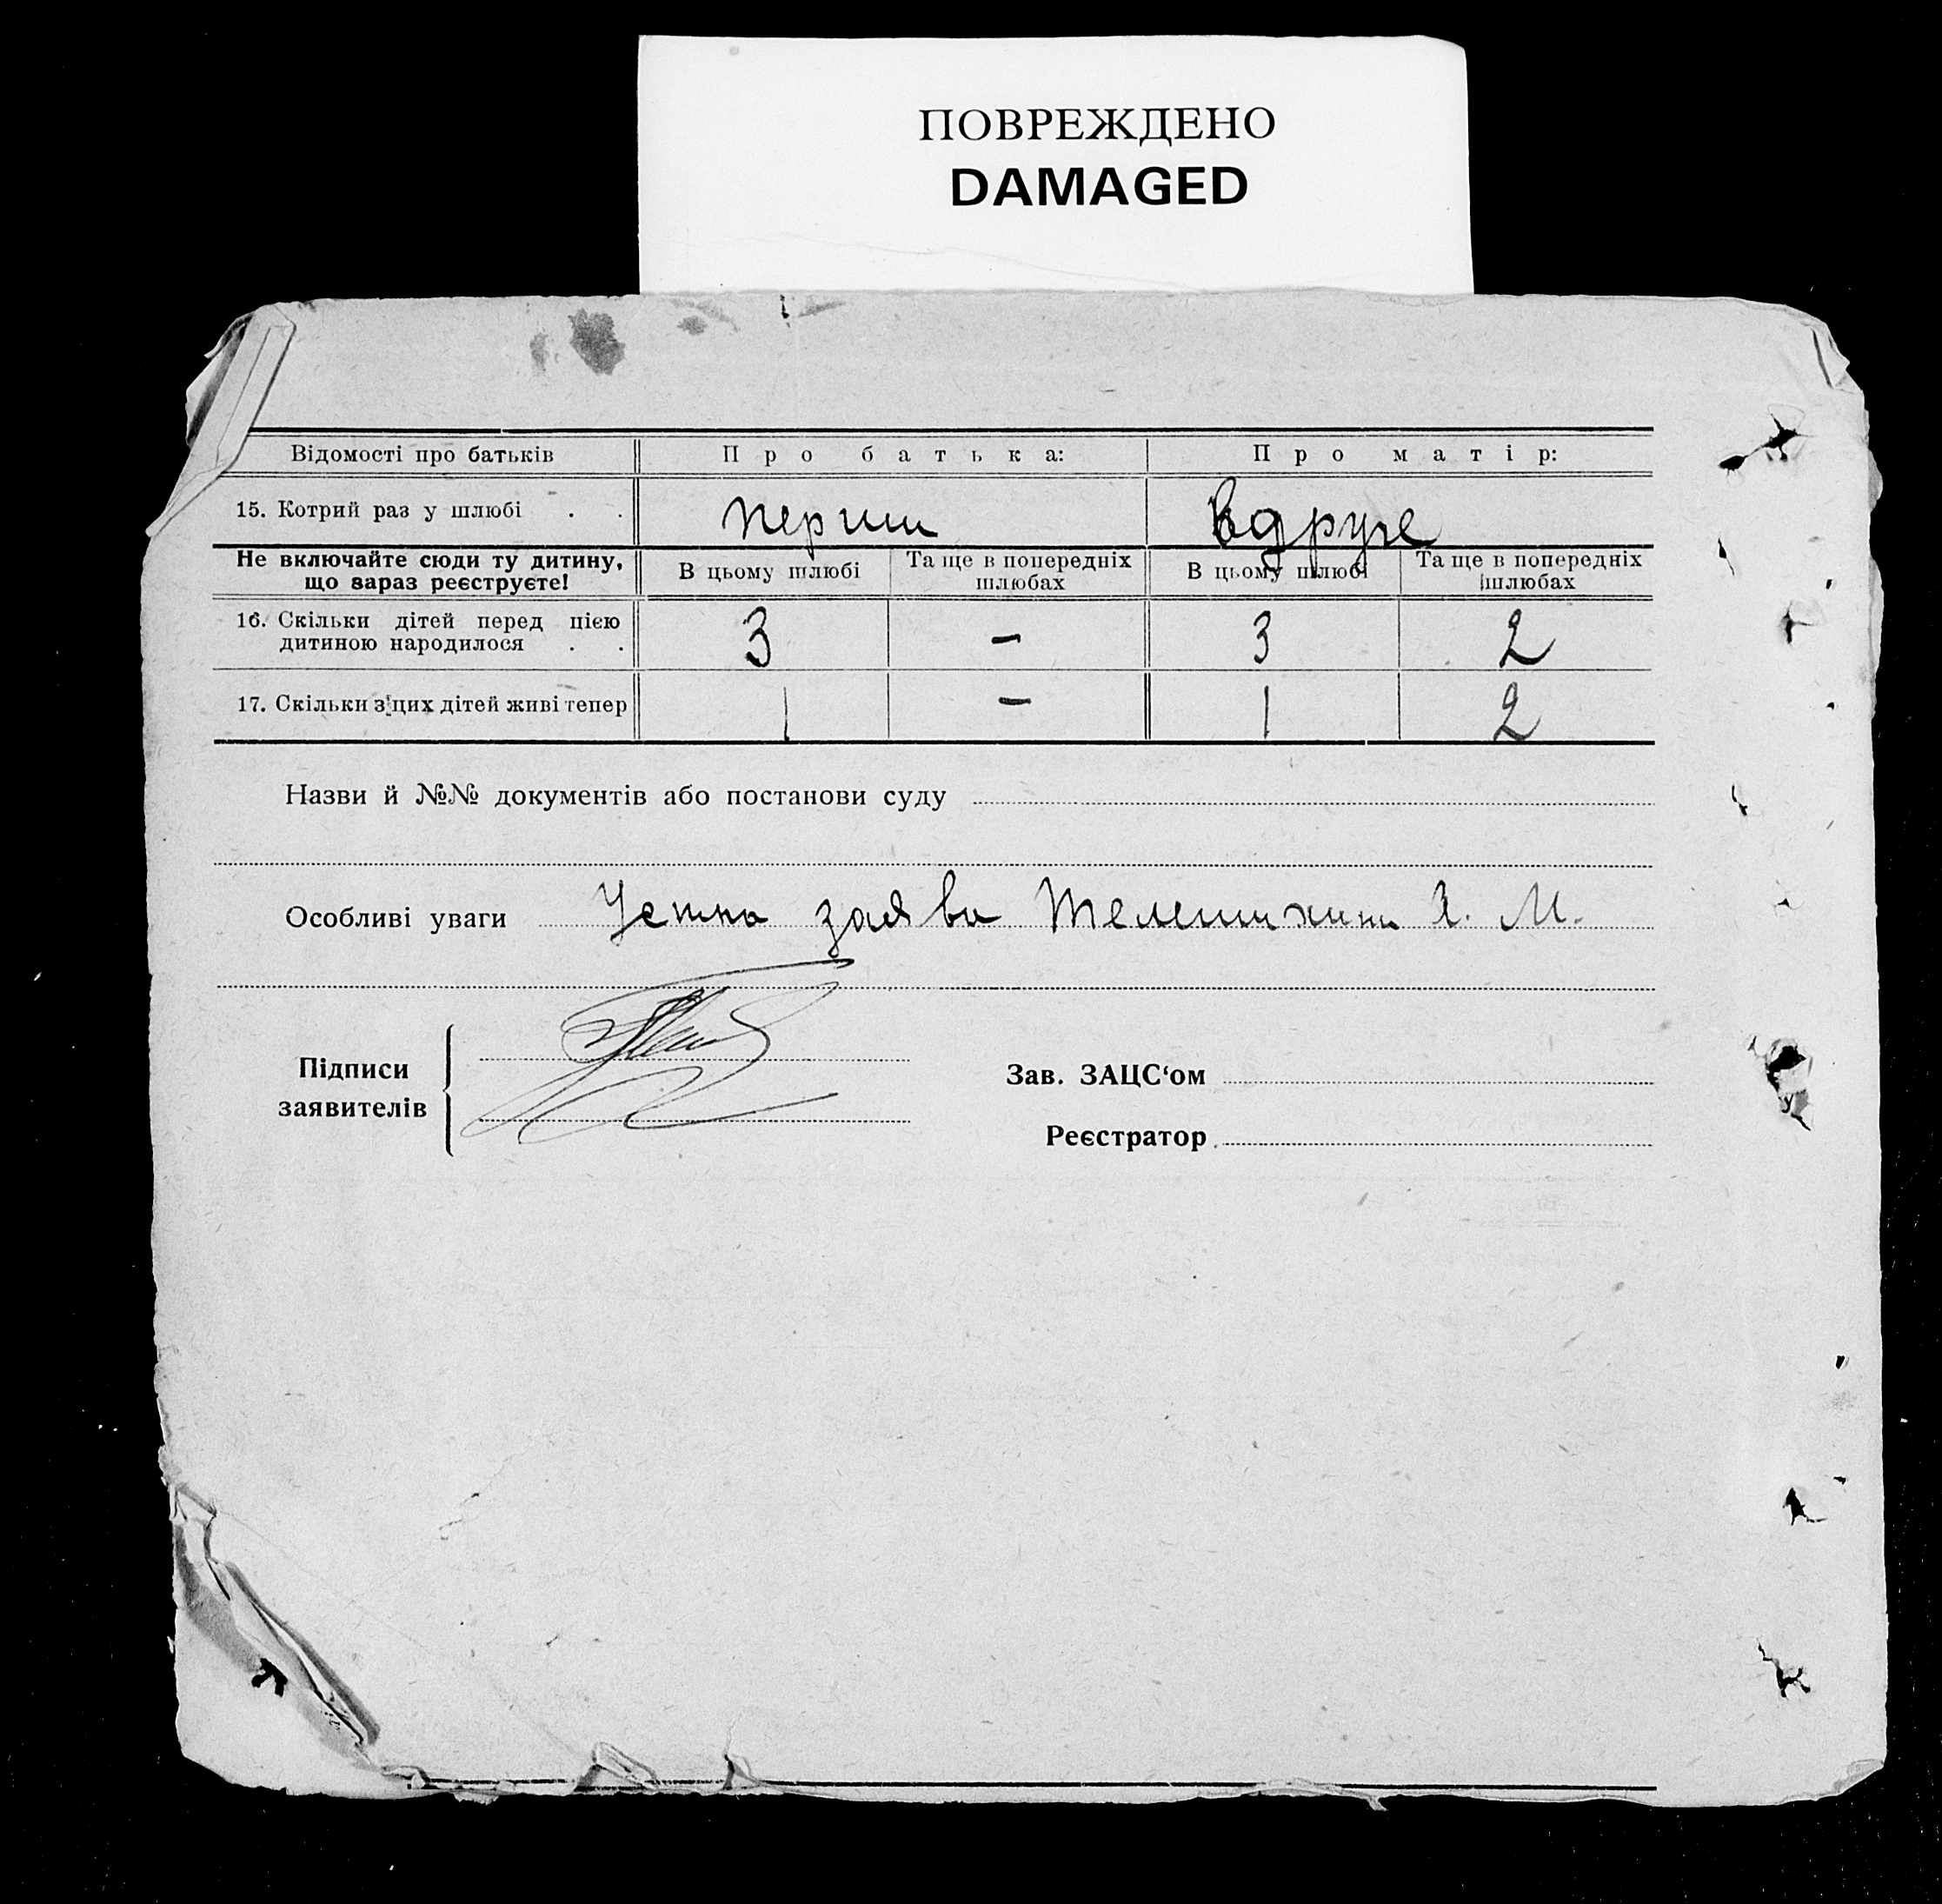 ПОВРЕЖДЕНО
DAMAGED
Відомості про батьків Про батька: Про матір:
15. Котрий раз у шлюбі . . перший вдруге
Не включайте сюди ту дитину, що вараз реєструєте! В цьому шлюбі Та ще в попередніх шлюбах В цьому шлюбі Та ще в попередніх шлюбах
16. Скільки дітей перед цією дитиною народилося . . 3 — 3 2
17. Скільки з цих дітей живі тепер 1 — 1 2
Назви й №№ документів або постанови суду
Особливі уваги Устна заява М.
Підписи заявителів
Зав. ЗАЦС‘ом
Реєстратор